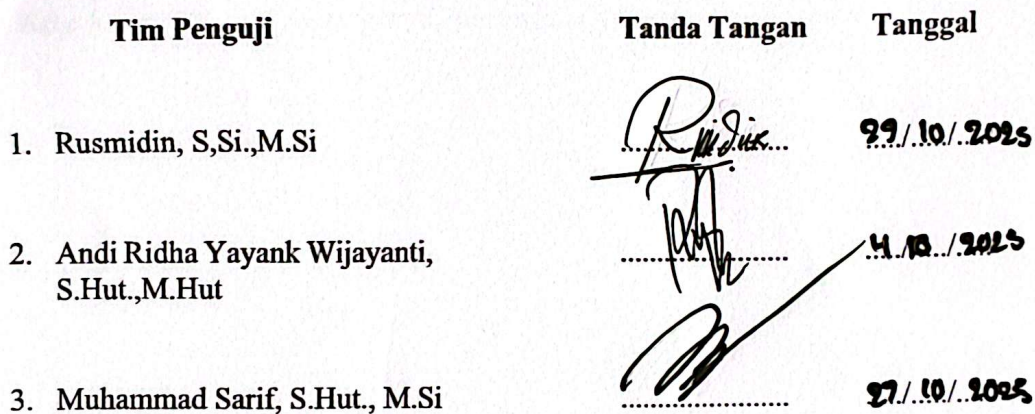 Tim Penguji Tanda Tangan Tanggal
1. Rusmidin, S,Si.,M.Si 29/.10/.2025
2. Andi Ridha Yayank Wijayanti, /2025
S.Hut.,M.Hut
3. Muhammad Sarif, S.Hut., M.Si 27/.10/.2025